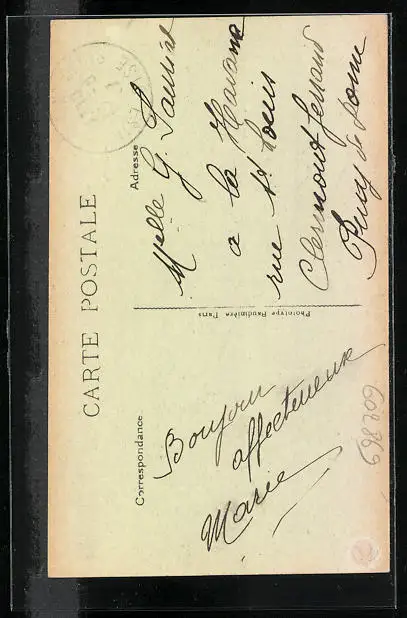 CARTE POSTALE
Correspondance
Adresse
Bonjour
affectueux
Marie
Melle G.
a la Havane
rue St Louis
Clermont ferrand
Puy de Dome
Phototype Baudinière Paris
602869